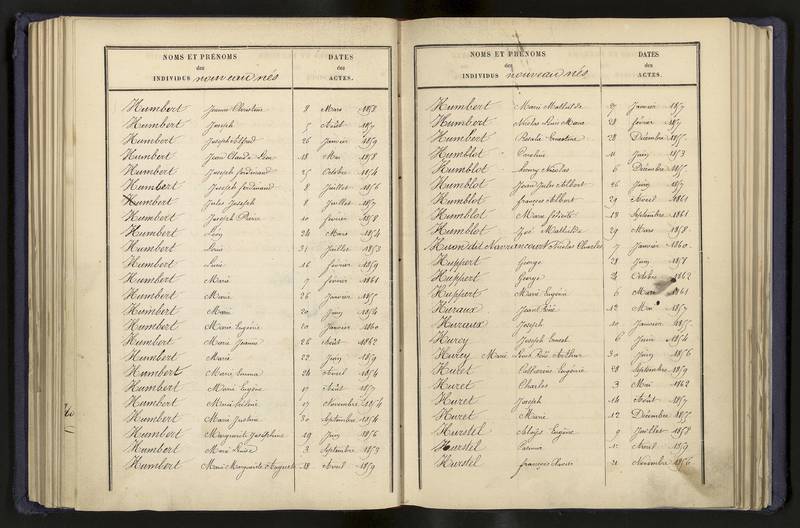 NOMS ET PRÉNOMS
des
INDIVIDUS nouveau nés
DATES
des
ACTES.
Humbert Jeanne Christine 8 Mars 1858
Humbert Joseph 5 Août 1857
Humbert Joseph Alfred 26 Janvier 1859
Humbert Jean Claude Léon 18 Mai 1858
Humbert Joseph Ferdinand 25 Octobre 1854
Humbert Joseph Ferdinand 8 Juillet 1856
Humbert Jules Joseph 8 Juillet 1857
Humbert Joseph Pierre 10 février 1858
Humbert Léon 24 Mars 1854
Humbert Louis 31 Juillet 1853
Humbert 16 février 1859
Humbert Marie 7 février 1861
Humbert Marie 26 Janvier 1855
Humbert Marie 20 Juin 1854
Humbert Marie Eugénie 20 Janvier 1860
Humbert Marie Jeanne 26 Août 1862
Humbert Marie 22 Juin 1859
Humbert Marie Emma 24 Avril 1854
Humbert Marie Eugène 17 Août 1857
Humbert Marie 17 Novembre 1854
Humbert Marie Justine 30 Septembre 1854
Humbert Marguerite Joséphine 19 Juin 1856
Humbert Marie Louise 3 Septembre 1853
Humbert Marie Marguerite Auguste 18 Avril 1859
NOMS ET PRÉNOMS
des
INDIVIDUS nouveau nés
DATES
des
ACTES.
Humbert Marie Mathilde 27 Janvier 1857
Humbert Nicolas Louis Marie 28 février 1857
Humbert Ernestine 28 Décembre 1855
Humblot Caroline 11 Juin 1853
Humblot Nicolas 6 Décembre 1855
Humblot Jean Jules Albert 26 Juin 1857
Humblot françois Albert 29 Avril 1861
Humblot Marie félicité 13 Septembre 1861
Humblot Zoé Mathilde 29 Mars 1858
Huon dit Navrancourt Nicolas Charles 7 Janvier 1860
Huppert George 28 Juin 1858
Huppert George 2 Octobre 1862
Huppert Marie Eugénie 6 Mars 1861
Huraux Jean René 12 Mai 1857
Huraux Joseph 10 Janvier 1855
Hurey Joseph Ernest 6 Juin 1854
Hurey Marie Louis René Arthur 30 Juin 1856
Huret Catherine Eugénie 28 Septembre 1859
Huret Charles 3 Mai 1862
Huret Joseph 14 Août 1857
Huret Marie 12 Décembre 1855
Hurstel Aloyse Eugène 9 Juillet 1858
Hurstel 12 Avril 1859
Hurstel françois Xavier 21 Novembre 1856